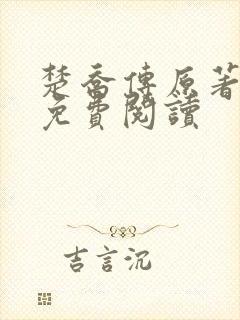 楚喬傳原著
免費閱讀
吉言沉